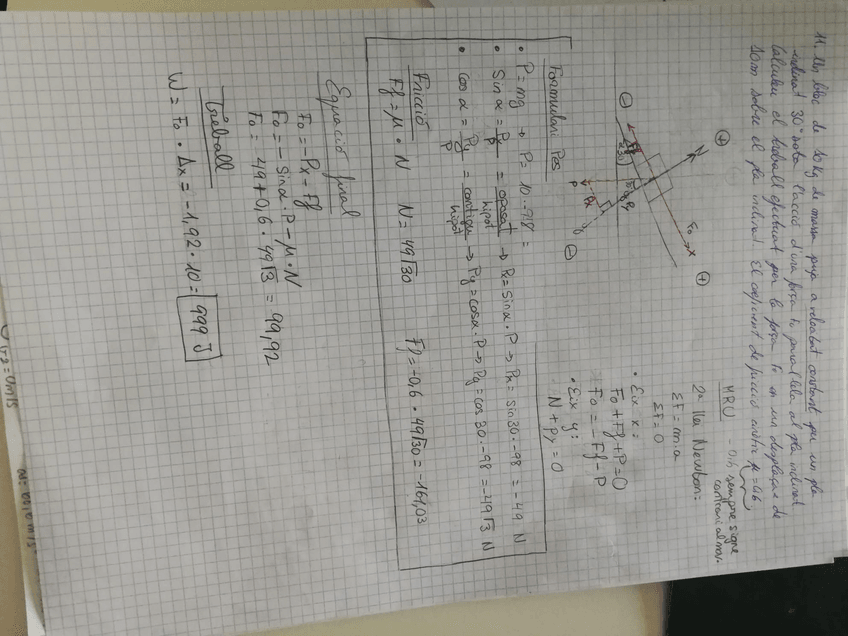 11. Un bloc de 10 kg de massa puja a velocitat constant per un pla
inclinat 30° sota l'acció d'una força Fo paral·lela al pla inclinat
Calculeu el treball efectuat per la força Fo en un desplaçament de
10m sobre el pla inclinat. El coeficient de fricció μ=0,6
MRU
-0,6 sempre signe
contrari al mov.
2a llei Newton:
ΣF = m·a
ΣF = 0
• Eix x:
Fo + Ff + P = 0
Fo = -Ff - P
• Eix y:
N + Py = 0
+
+
Fo
x
30
Py
Px
P
-
-
Formulari Pes
• P = mg → P = 10·-9'8 =
• Sin α = Px/P = oposat/hipot → Px = Sin α · P → Px = sin 30 · -98 = -49 N
• Cos α = Py/P = contigu/hipot → Py = cos α · P → Py = cos 30 · -98 = -49√3 N
Fricció
Ff = μ · N N = 49√30 Ff = -0,6 · 49√30 = -161,03
Equació final
Fo = -Px - Ff
Fo = -Sin α · P - μ · N
Fo = -49 + 0,6 · 49√3 = 99,92
Treball
W = Fo · Δx = -1,92 · 10 = 999 J